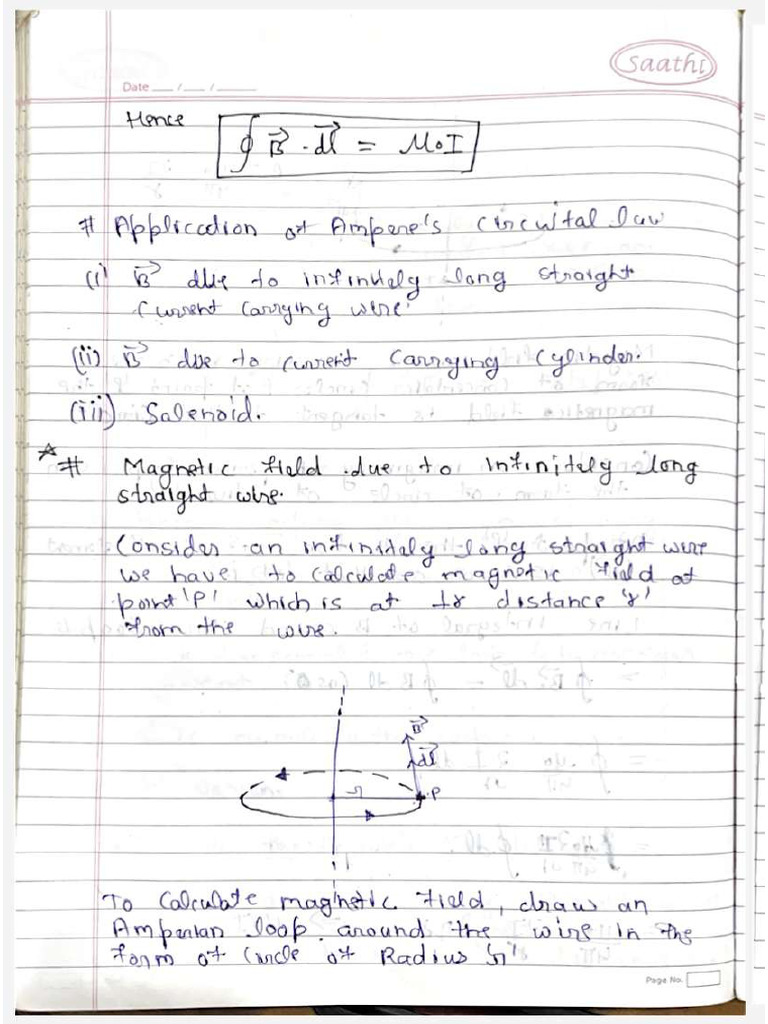 Saathi
Date __/__/__
Hence
∮ B⃗ . dl⃗ = μ₀I
# Application of Ampere's circuital law
(i) B⃗ due to infinitely long straight
current carrying wire.
(ii) B⃗ due to current carrying cylinder.
(iii) Salenoid.
# Magnetic field due to infinitely long
straight wire.
Consider an infinitely long straight wire
we have to calculate magnetic field at
point 'P' which is at distance 'r'
from the wire.
B⃗
dl⃗
r
P
I
To calculate magnetic field, draw an
Amperian loop around the wire in the
form of circle of Radius 'r'
Page No.